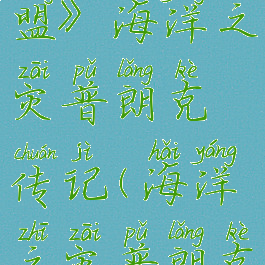 盟》海洋之
zāi pǔ lǎng kè
灾普朗克
chuán jì hǎi yáng
传记(海洋
zhī zāi pǔ lǎng kè
之灾普朗克